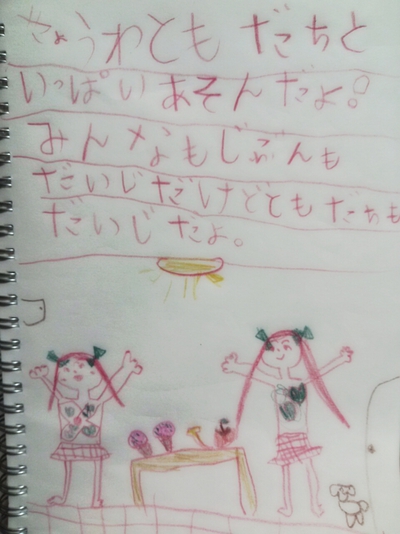 きょうわともだちと
いっぱいあそんだよ!
みんなもじぶんも
だいじだけどともだちも
だいじだよ。